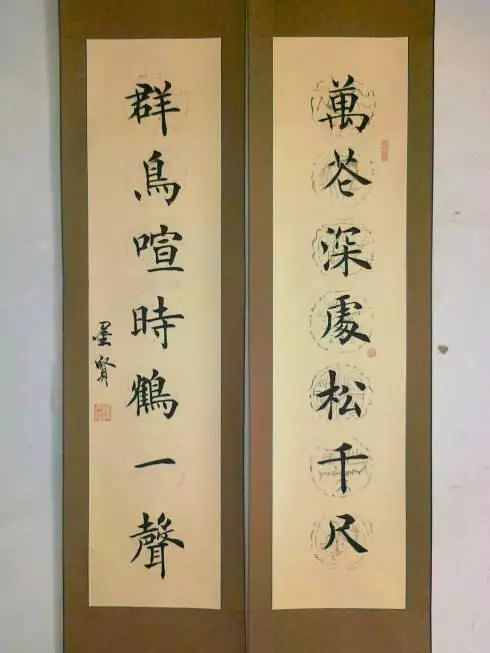 萬花深處松千尺
群鳥喧時鶴一聲
墨賢